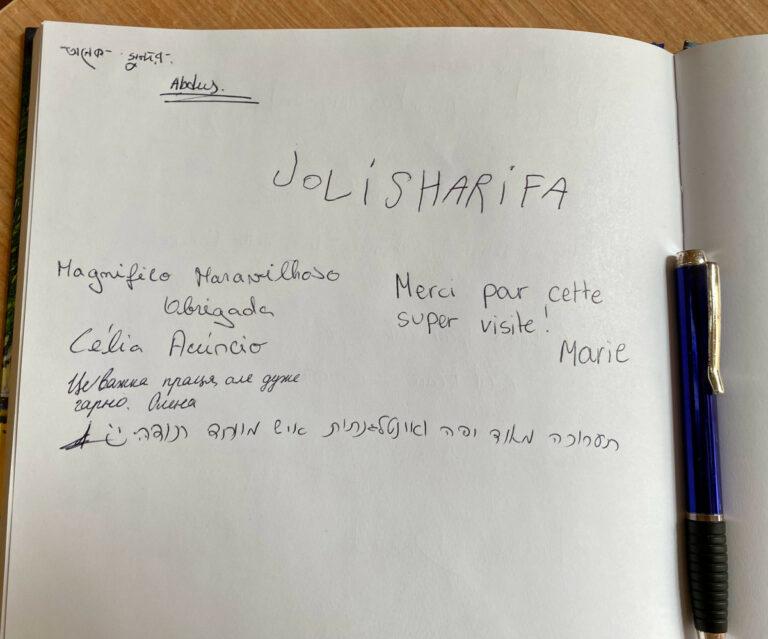 অনেক সুন্দর.
Abdus.
JOLiSHARiFA
Magnifico Maravilhoso
Obrigada
Célia Acúrcio
Merci par cette
super visite!
Marie
Це важка праця, але дуже
гарно. Олена
תערוכה מאוד יפה ואינטלגנתית איש מיוחד תודה.